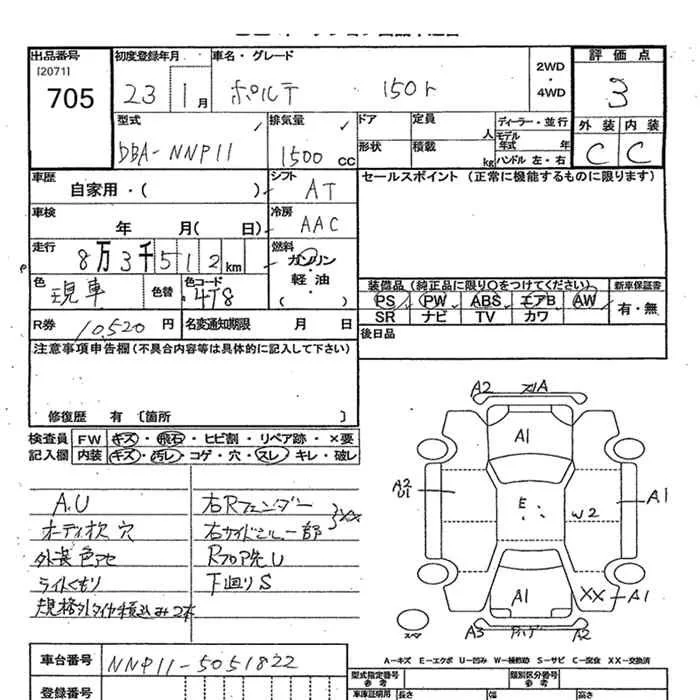 出品番号 初度登録年月 車名・グレード 2WD・4WD 評価点
[2071]
705 23 1月 ポルテ 150r 3
型式 排気量 ドア 定員 人 ディーラー・並行 外装 内装
DBA-NNP11 1500 CC 形状 積載 kg モデル年式 年 C C
ハンドル 左・右
車歴 自家用・( ) シフト AT セールスポイント (正常に機能するものに限ります)
車検 年 月( 日) 冷房 AAC
走行 8万3千512km 燃料 ガソリン
軽油
( )
色 現車 色替 色コード 4T8
装備品 (純正品に限り○をつけてください) 新車保証書
PS PW ABS エアB AW 有・無
SR ナビ TV カワ
R券 10520円 名変通知期限 月 日 後日品
注意事項申告欄 (不具合内容等は具体的に記入して下さい)
修復歴 有 [箇所 ]
検査員 FW キズ・飛石・ヒビ割・リペア跡・×要
記入欄 内装 キズ・汚レ・コゲ・穴・スレ・キレ・破レ
A.U
オーディオ欠 穴
外装 色アセ
ライトくもり
規格外タイヤ積込み2本
右Rフェンダー
右サイドシル一部 XX
Rフロア先 U
下廻り S
A2 A
A1
A2
U1
E
W2
A1
A1
XX
A1
A3 A2
スペア
A-キズ E-エクボ U-凹み W-補修跡 S-サビ C-腐食 XX-交換済
車台番号 NNP11-5051822
登録番号
型式指定番号 参考 類別区分番号 参考
車庫証明用 長さ 幅 高さ